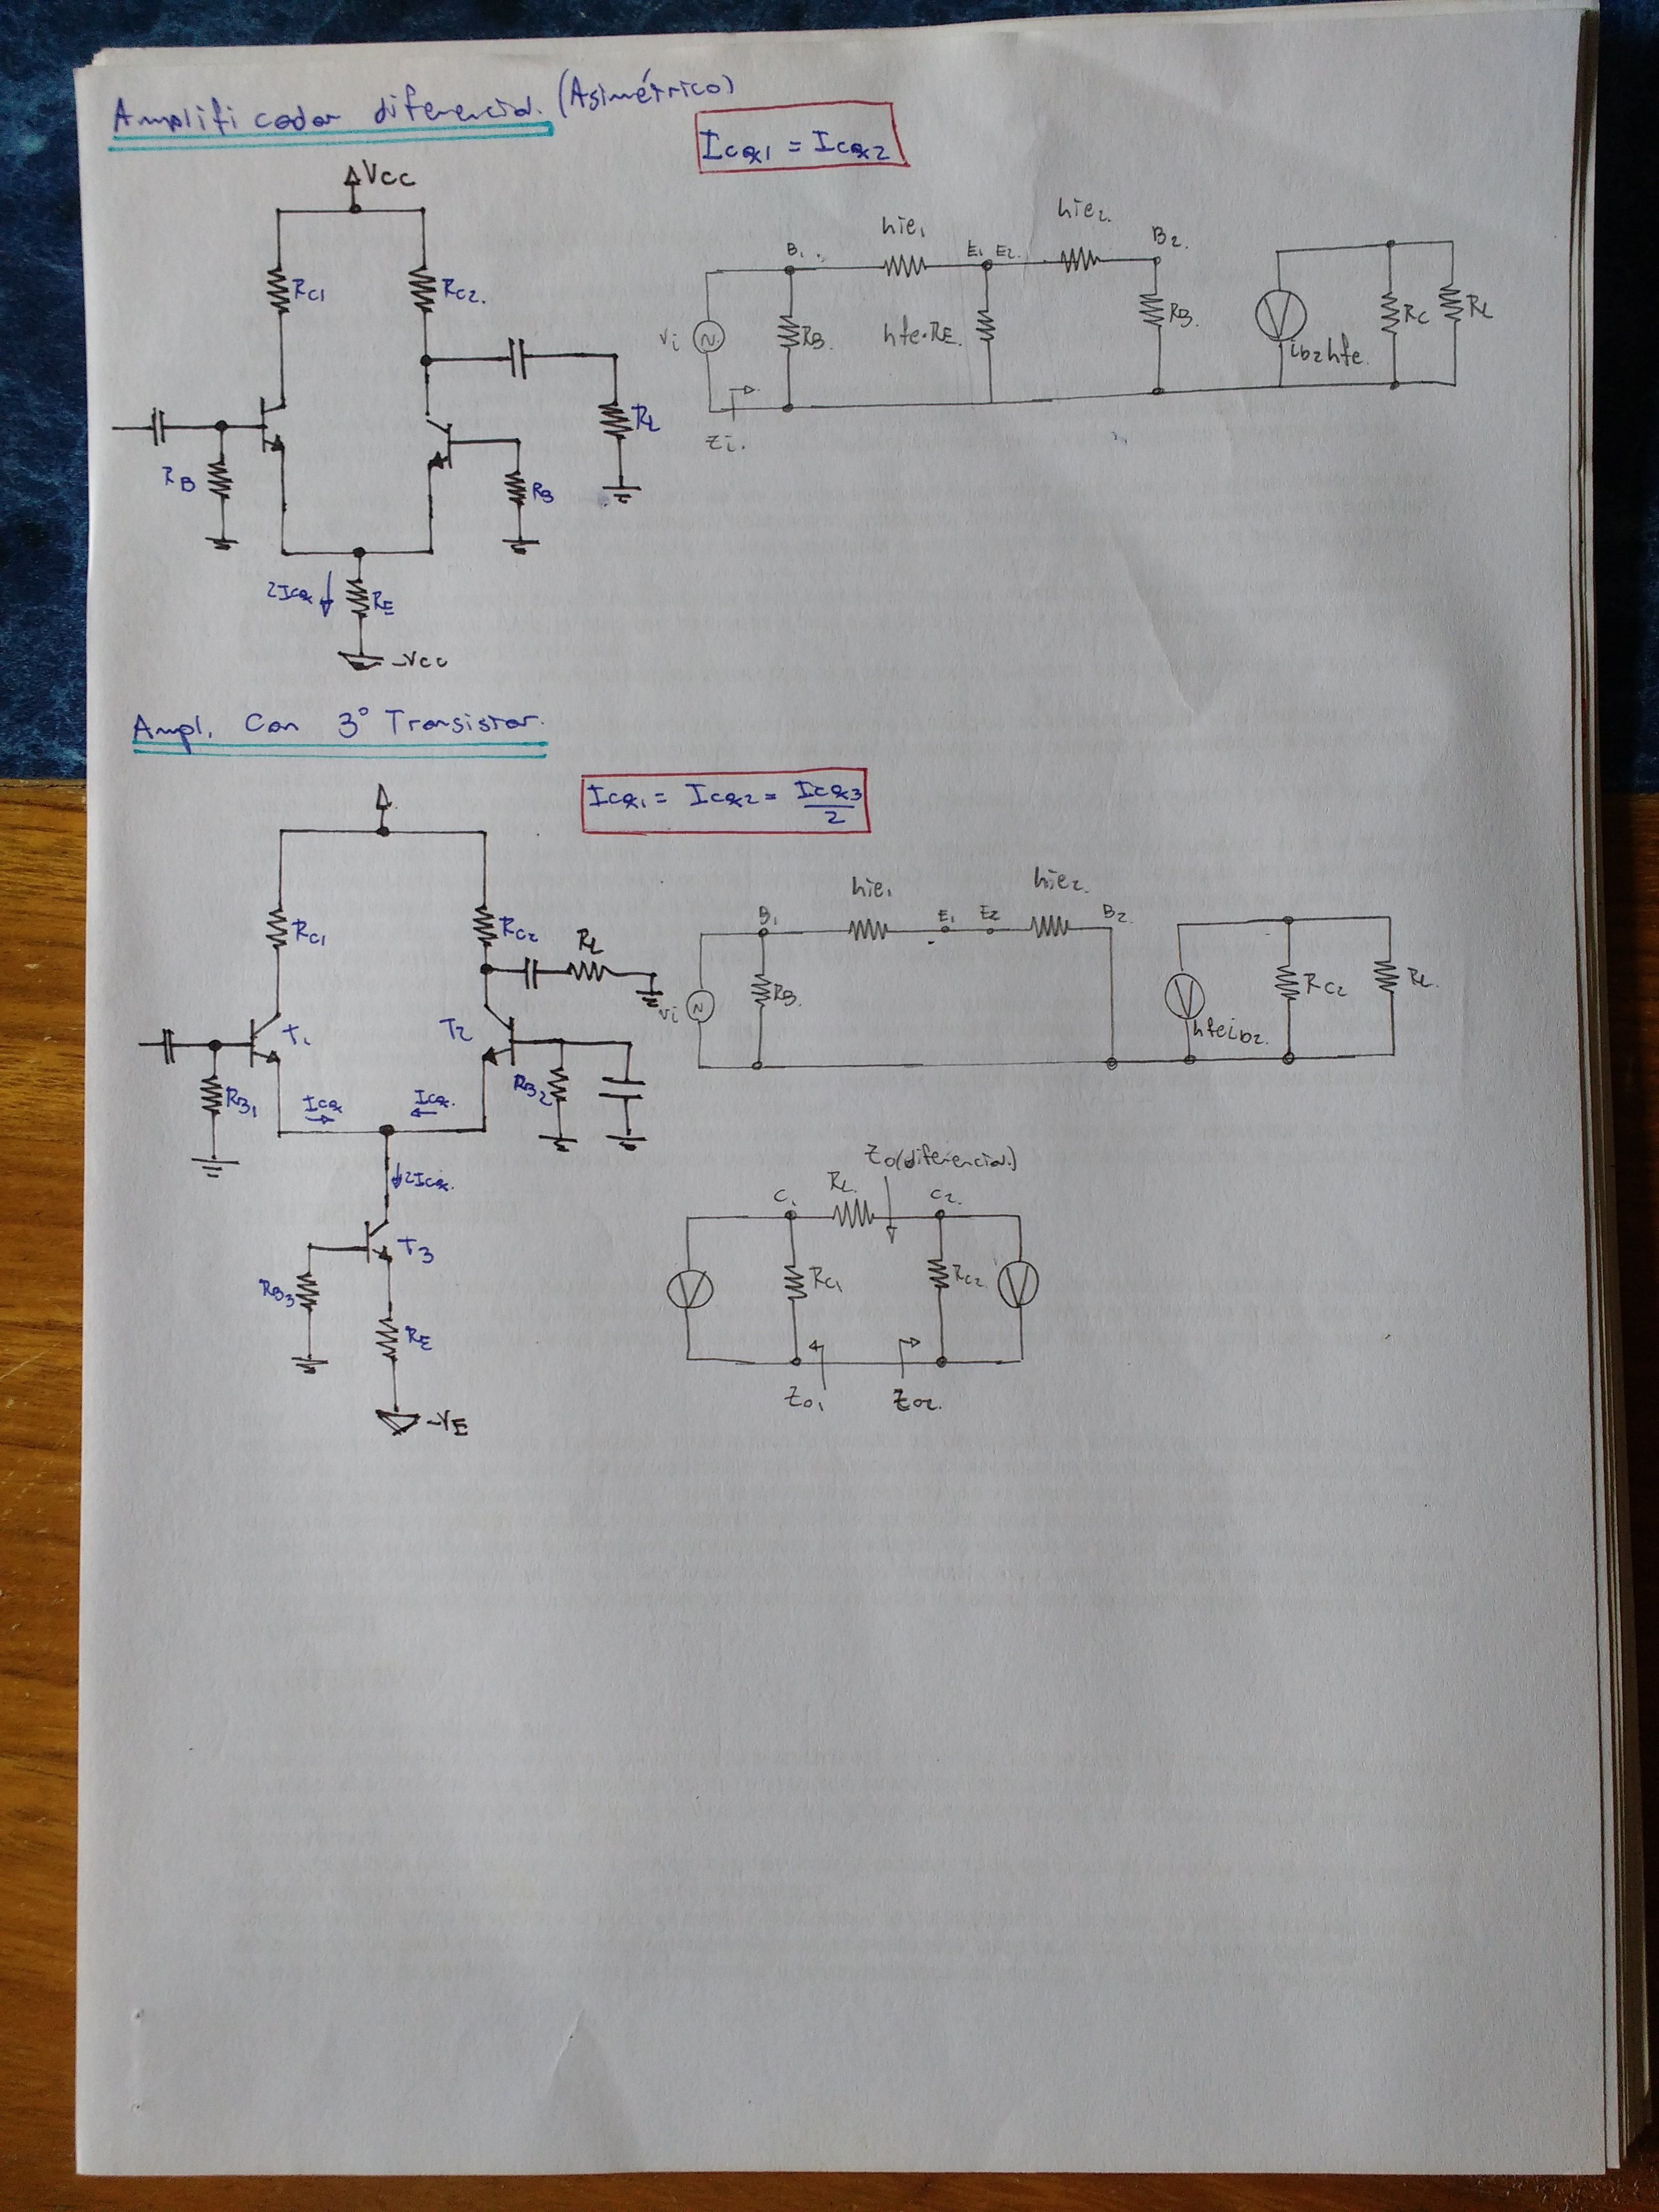 Amplificador diferencial. (Asimétrico)
Icq1 = Icq2
Vcc
Rc1
Rc2.
RB
RB
RL
2Icq
RE
-Vcc
hie1
hie2.
B1.
E1 E2.
B2.
vi
RB.
hfe·RE.
RB.
ib2hfe.
Rc
RL
Zi.
Ampl. Con 3° Transistor.
Icq1 = Icq2 = Icq3
2
Rc1
Rc2
RL
T1
T2
RB1
RB2
Icq
Icq.
2Icq.
T3
RB3
RE
-VE
hie1
hie2.
B1
E1
E2
B2
vi
RB.
hfeib2.
Rc2
RL.
Zo(diferencial.)
RL.
C1
C2.
Rc1
Rc2.
Zo1
Zo2.